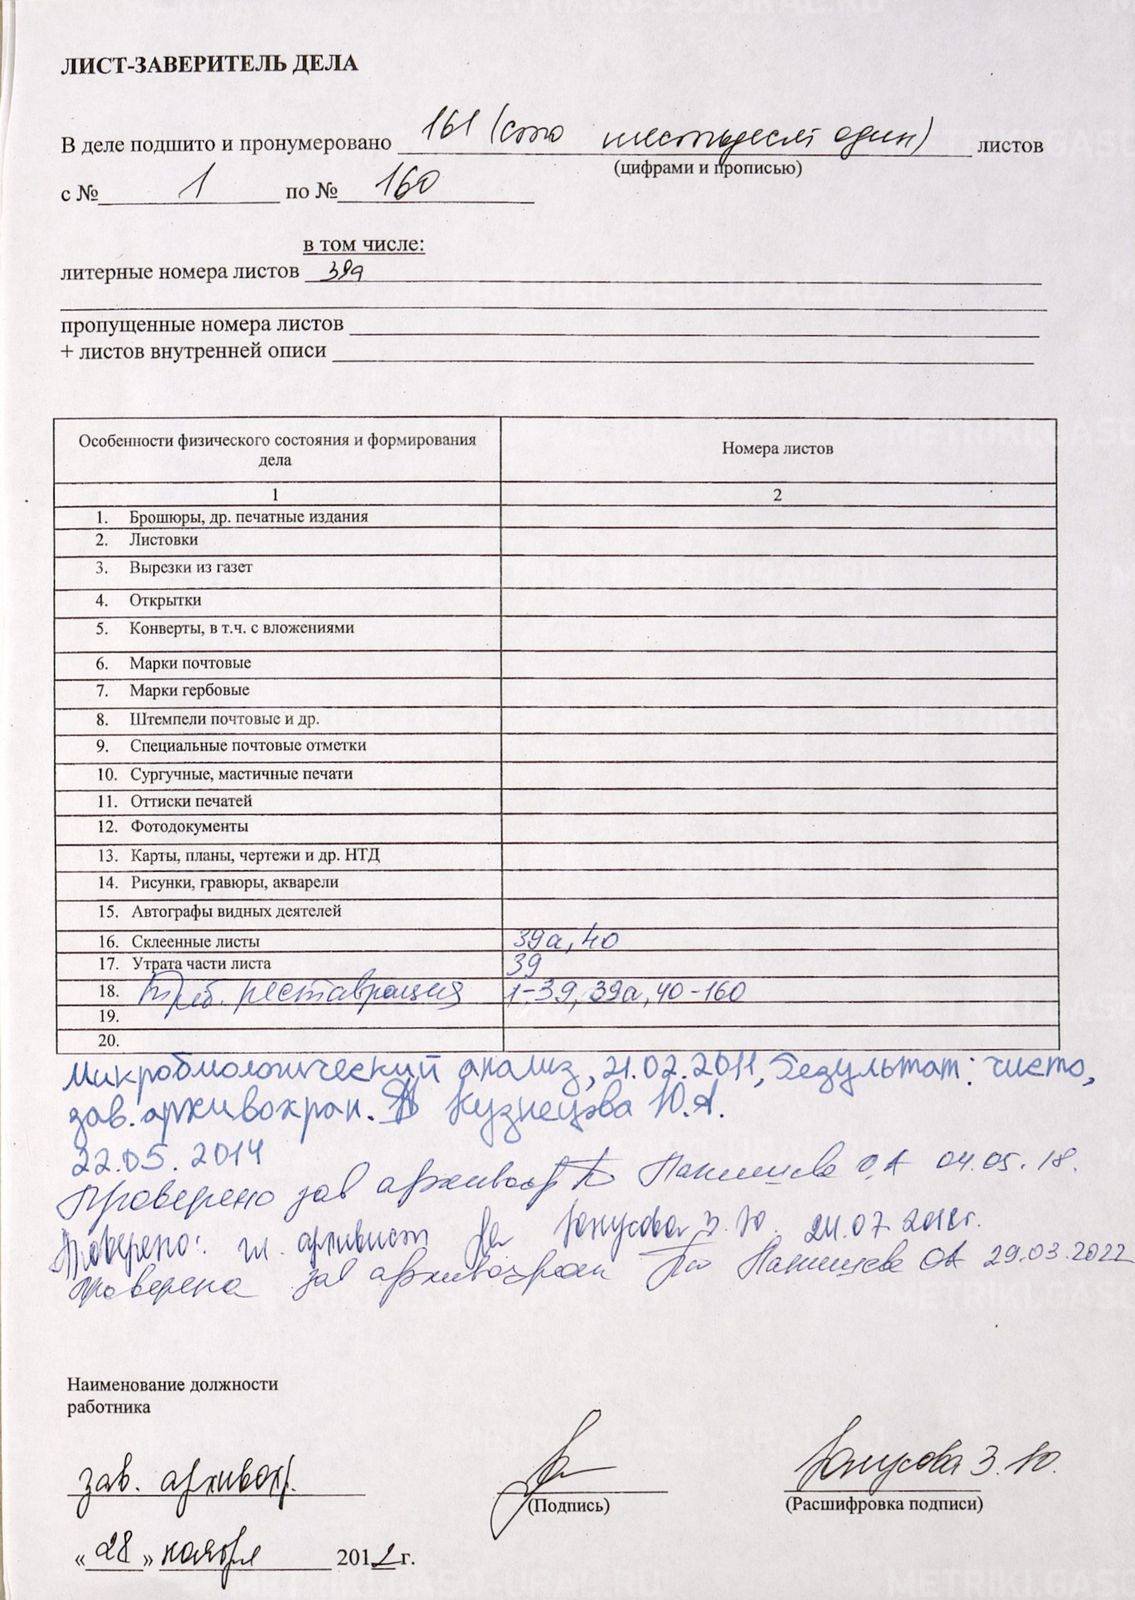 ЛИСТ-ЗАВЕРИТЕЛЬ ДЕЛА
В деле подшито и пронумеровано 161 (сто шестьдесят один) листов
(цифрами и прописью)
с № 1 по № 160
в том числе:
литерные номера листов 39а
пропущенные номера листов
+ листов внутренней описи
Особенности физического состояния и формирования дела
Номера листов
1 2
1. Брошюры, др. печатные издания
2. Листовки
3. Вырезки из газет
4. Открытки
5. Конверты, в т.ч. с вложениями
6. Марки почтовые
7. Марки гербовые
8. Штемпели почтовые и др.
9. Специальные почтовые отметки
10. Сургучные, мастичные печати
11. Оттиски печатей
12. Фотодокументы
13. Карты, планы, чертежи и др. НТД
14. Рисунки, гравюры, акварели
15. Автографы видных деятелей
16. Склеенные листы 39а, 40
17. Утрата части листа 39
18. Треб. реставрация 1-39, 39а, 40-160
19.
20.
Микробиологический анализ, 21.02.2011, результат: чисто,
зав. архивохран. Кузнецова Ю.А.
22.05.2014
Проверено зав архивохр О.А 04.05.18.
Проверено: гл. архивист Юнусова З.Ю. 24.07.2018г.
проверена зав архивохран ОА 29.03.2022
Наименование должности
работника
зав. архивохр. Юнусова З.Ю.
(Подпись) (Расшифровка подписи)
«28» ноября 2012 г.